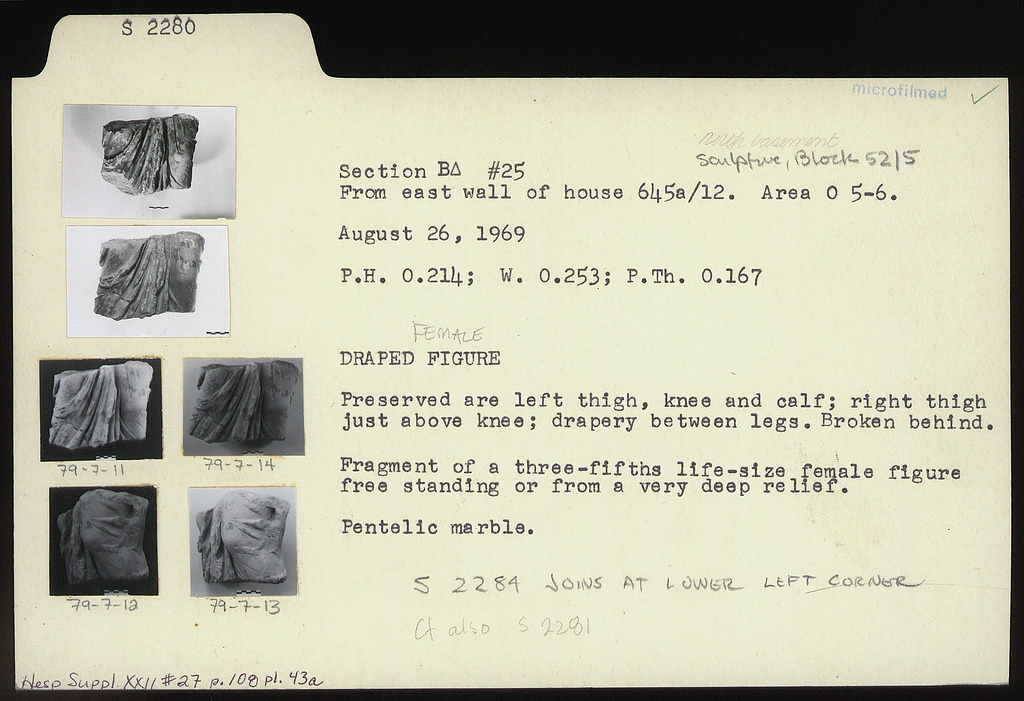 S 2280
microfilmed
basement
Sculpture, Block 52/5
Section ΒΔ #25
From east wall of house 645a/12. Area O 5-6.
August 26, 1969
P.H. 0.214; W. 0.253; P.Th. 0.167
FEMALE
DRAPED FIGURE
Preserved are left thigh, knee and calf; right thigh
just above knee; drapery between legs. Broken behind.
Fragment of a three-fifths life-size female figure
free standing or from a very deep relief.
Pentelic marble.
S 2284 JOINS AT LOWER LEFT CORNER
Cf also S 2281
79-7-11
79-7-14
79-7-12
79-7-13
Hesp Suppl. XXII #27 p. 108 pl. 43a